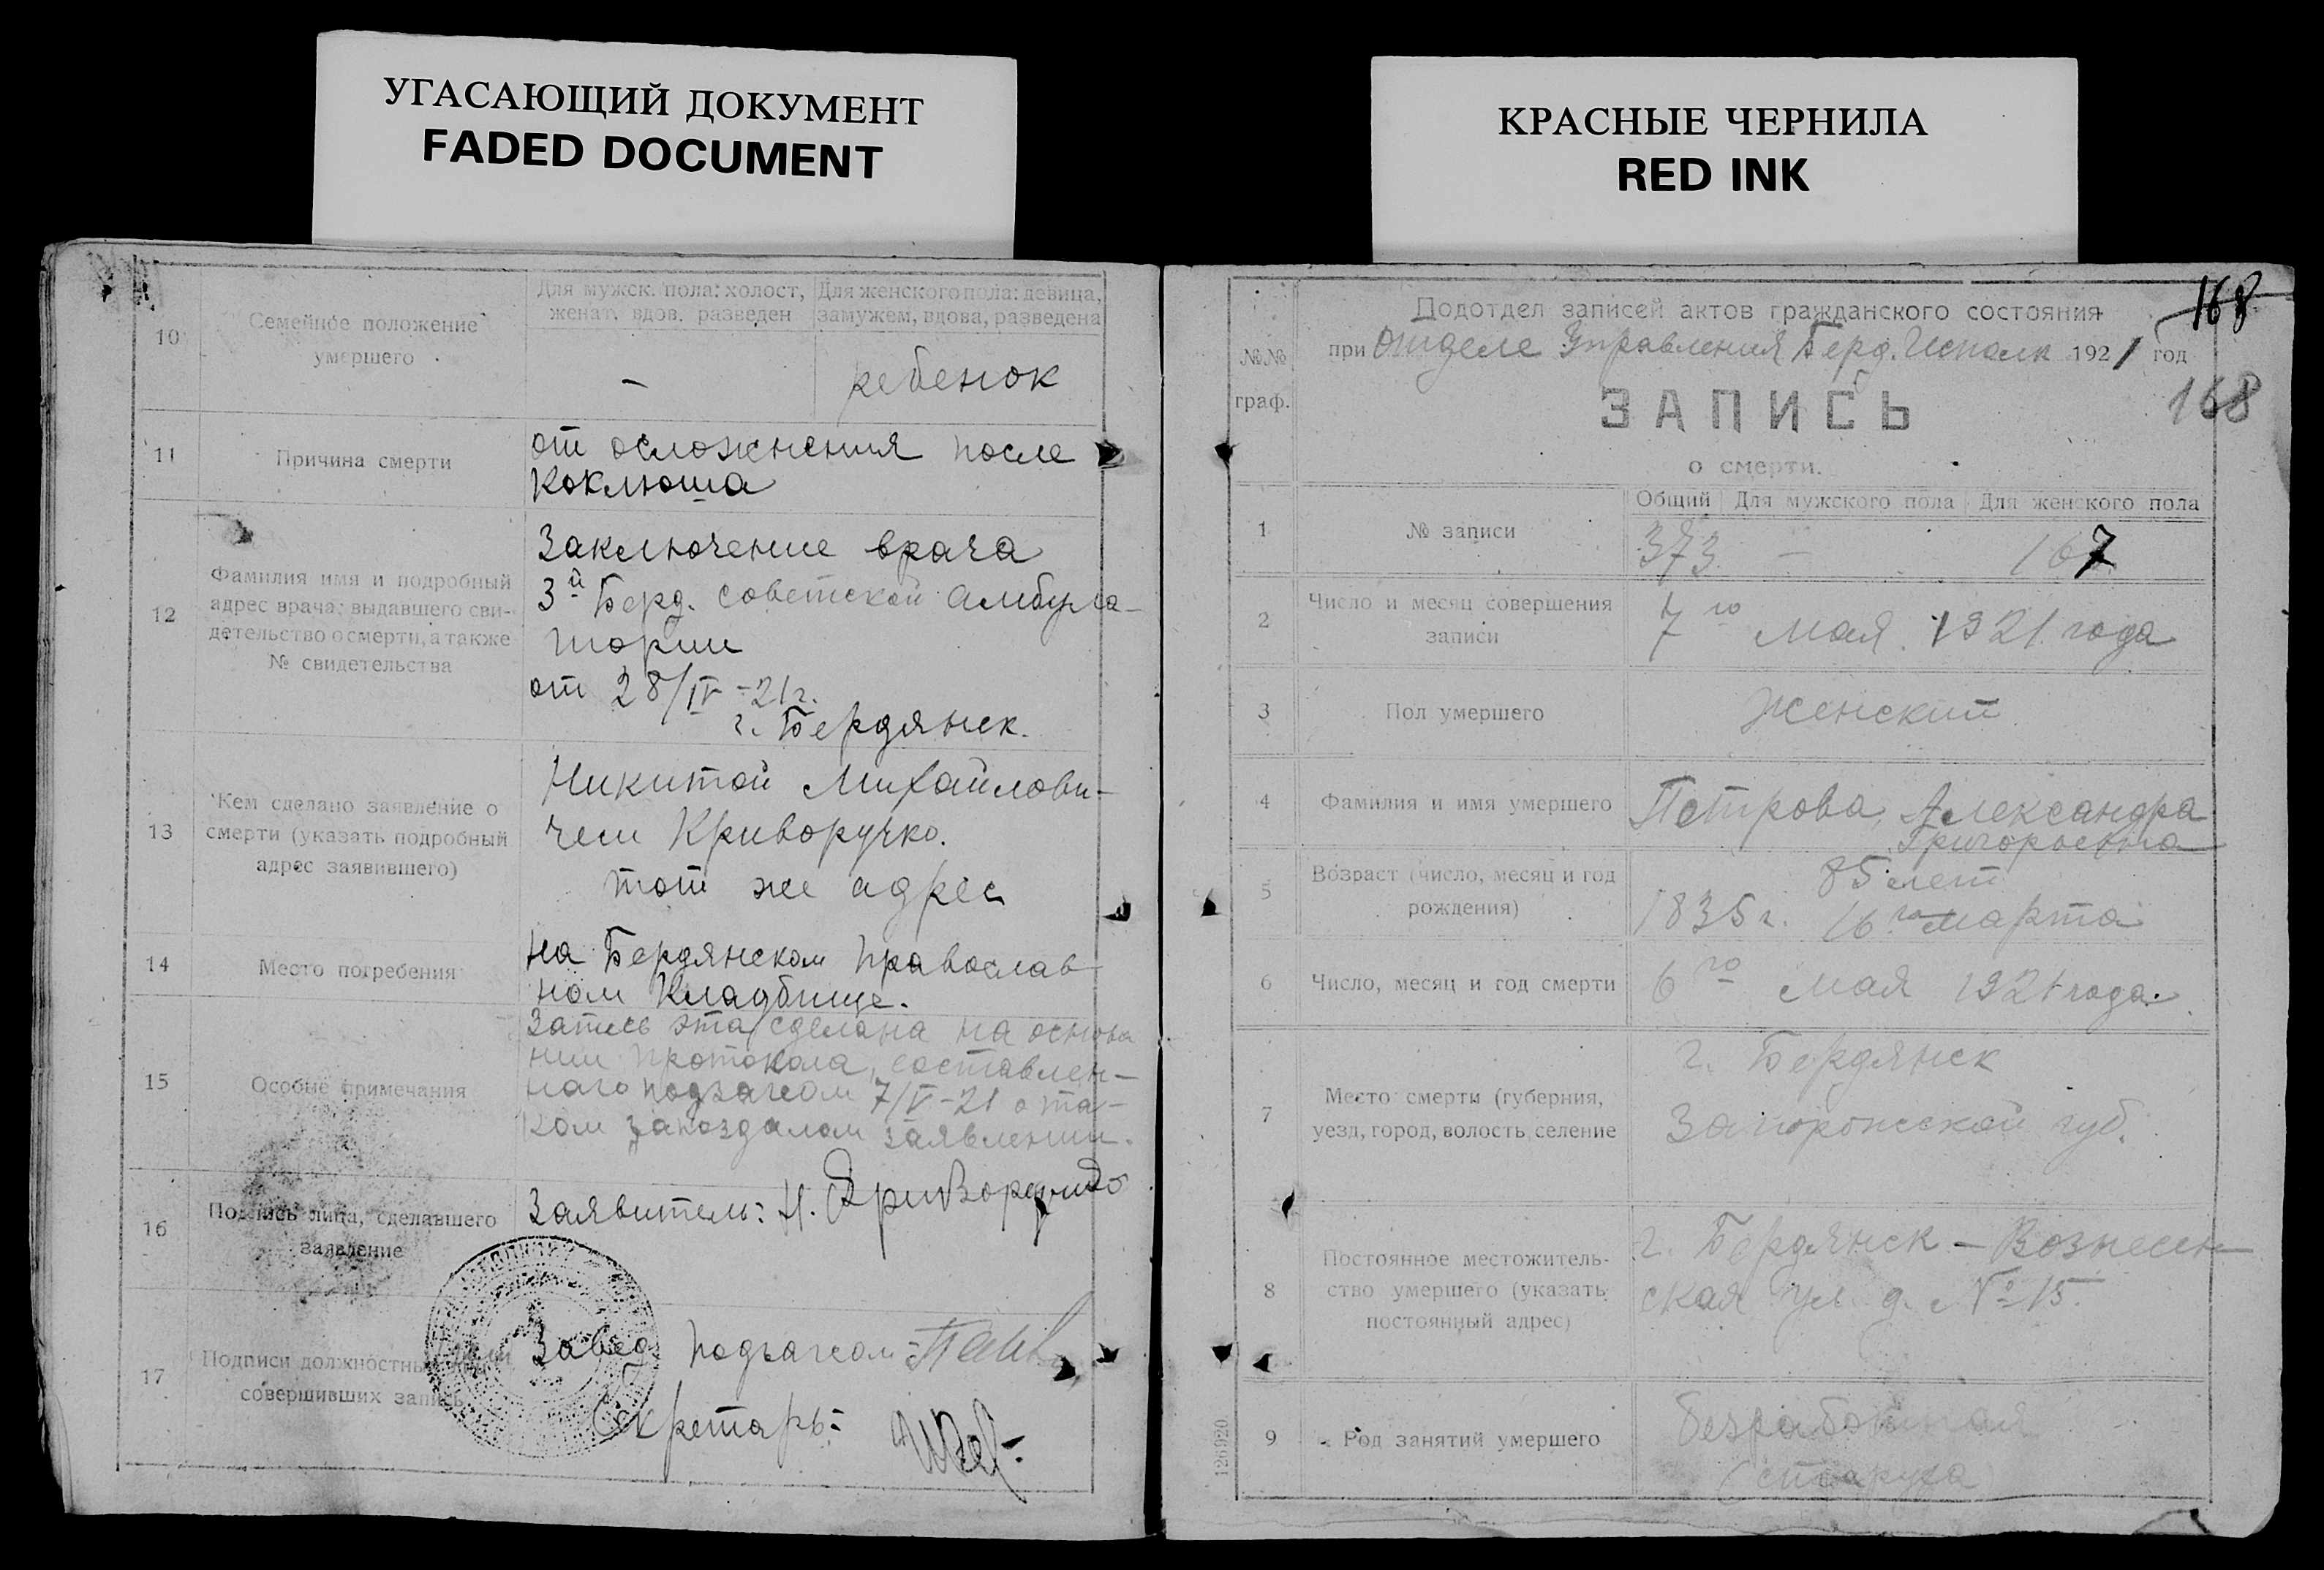 УГАСАЮЩИЙ ДОКУМЕНТ
FADED DOCUMENT
КРАСНЫЕ ЧЕРНИЛА
RED INK
10
Семейное положение
умершего
Для мужск. пола: холост,
женат, вдов. разведен
Для женского пола: девица,
замужем, вдова, разведена
—
ребенок
11
Причина смерти
от осложнения после
коклюша
12
Фамилия имя и подробный
адрес врача, выдавшего сви-
детельство о смерти, а также
№ свидетельства
Заключение врача
3й Берд. советской амбула-
тории
от 28/IV-21г.
г. Бердянск.
13
Кем сделано заявление о
смерти (указать подробный
адрес заявившего)
Никитой Михайлови-
чем Криворучко.
тот же адрес
14
Место погребения
на Бердянском православ-
ном кладбище.
15
Особые примечания
Запись эта сделана на основа
нии протокола, составлен-
наго подзагсом 7/V-21 о та-
ком запоздалом заявлении.
16
Подпись лица, сделавшего
заявление
Заявитель: Н. Криворучко
17
Подписи должностных
совершивших запись
Завед. подзагсом
Секретарь:
№№
граф.
Подотдел записей актов гражданского состояния
при Отделе Управления Берд. Исполк 1921 год
168
ЗАПИСЬ
168
о смерти.
1
№ записи
Общий
Для мужского пола
Для женского пола
373
—
167
2
Число и месяц совершения
записи
7го мая 1921 года
3
Пол умершего
женский
4
Фамилия и имя умершего
Петрова, Александра
Григорьевна
5
Возраст (число, месяц и год
рождения)
85 лет
1835 г. 16го марта
6
Число, месяц и год смерти
6го мая 1921 года.
7
Место смерти (губерния,
уезд, город, волость, селение
г. Бердянск
Запорожской губ.
8
Постоянное местожитель-
ство умершего (указать
постоянный адрес)
г. Бердянск – Вознесен-
ская ул. д. № 15.
9
Род занятий умершего
безработная
(старуха)
126920